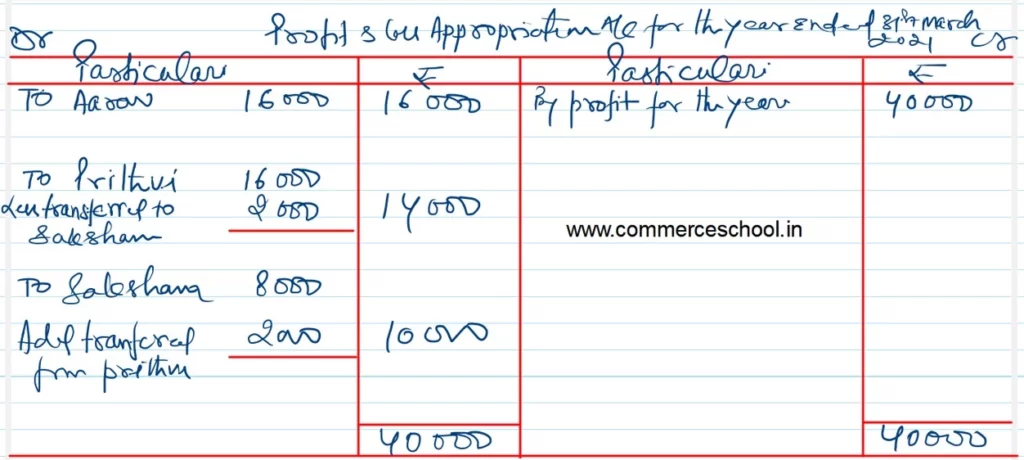 Dr Profit & Loss Appropriation A/c for the year ended 31st March 2021 Cr
Particulars ₹ Particulars ₹
TO Aarav 16000 16000 By profit for the year 40000
TO Prithvi 16000
Less transferred to 2000 14000
Saksham
www.commerceschool.in
TO Saksham 8000
Add tranferred 2000 10000
from prithvi
40000 40000